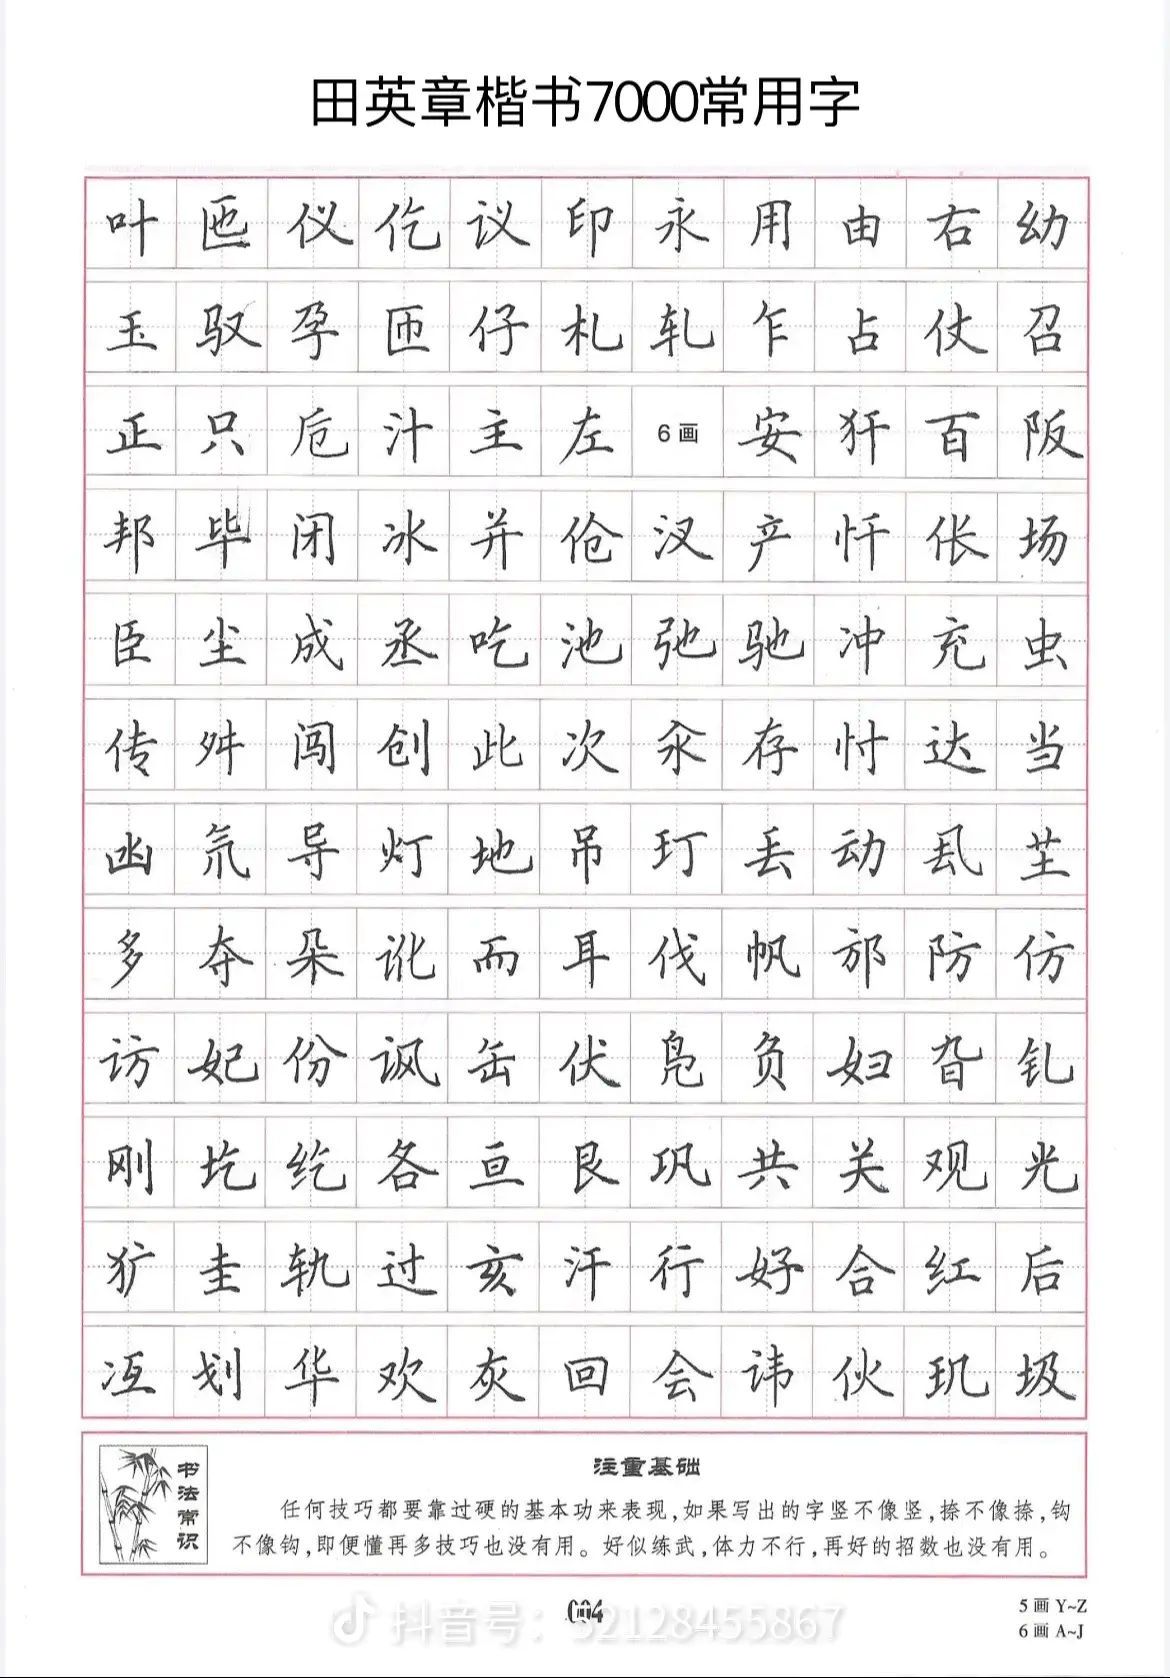 田英章楷书7000常用字
叶 匜 仪 仡 议 印 永 用 由 右 幼
玉 驭 孕 匝 仔 札 轧 乍 占 仗 召
正 只 卮 汁 主 左 6画 安 犴 百 阪
邦 毕 闭 冰 并 伧 汊 产 忏 伥 场
臣 尘 成 丞 吃 池 弛 驰 冲 充 虫
传 舛 闯 创 此 次 汆 存 忖 达 当
凼 氘 导 灯 地 吊 玎 丢 动 乩 芏
多 夺 朵 讹 而 耳 伐 帆 邡 防 仿
访 妃 份 讽 缶 伏 凫 负 妇 旮 钆
刚 圪 纥 各 亘 艮 巩 共 关 观 光
犷 圭 轨 过 亥 汗 行 好 合 红 后
冱 划 华 欢 灰 回 会 讳 伙 玑 圾
书法常识
注重基础
任何技巧都要靠过硬的基本功来表现,如果写出的字竖不像竖,捺不像捺,钩
不像钩,即便懂再多技巧也没有用。好似练武,体力不行,再好的招数也没有用。
004
抖音号：52128455867
5画 Y~Z
6画 A~J